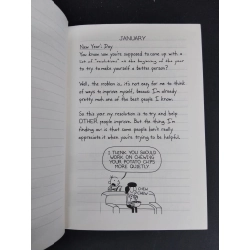 JANUARY
New Year's Day
You know how you're supposed to come up with a
list of "resolutions" at the beginning of the year
to try to make yourself a better person?
Well, the problem is, it's not easy for me to think
of ways to improve myself, because I'm already
pretty much one of the best people I know.
So this year my resolution is to try and help
OTHER people improve. But the thing I'm
finding out is that some people don't really
appreciate when you're trying to be helpful.
I THINK YOU SHOULD
WORK ON CHEWING
YOUR POTATO CHIPS
MORE QUIETLY.
CHEW
CHEW